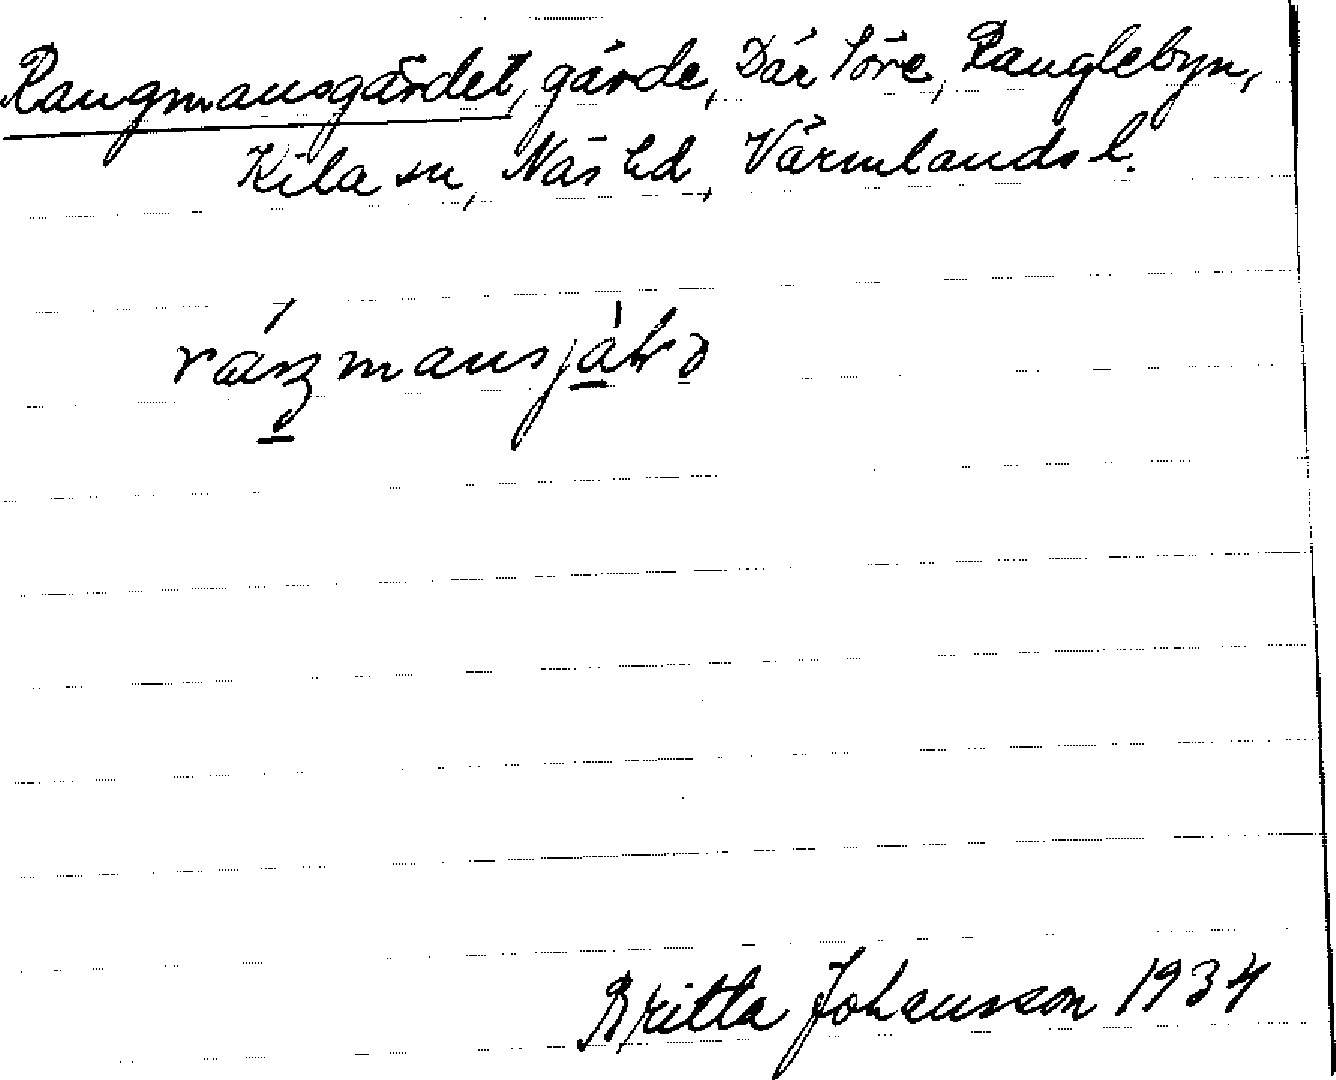 Rangmansgärdet, gärde, Där Söre, Ranglebyn,
Kila sn, Näs hd, Värmlands l.
Britta Johansson 1934